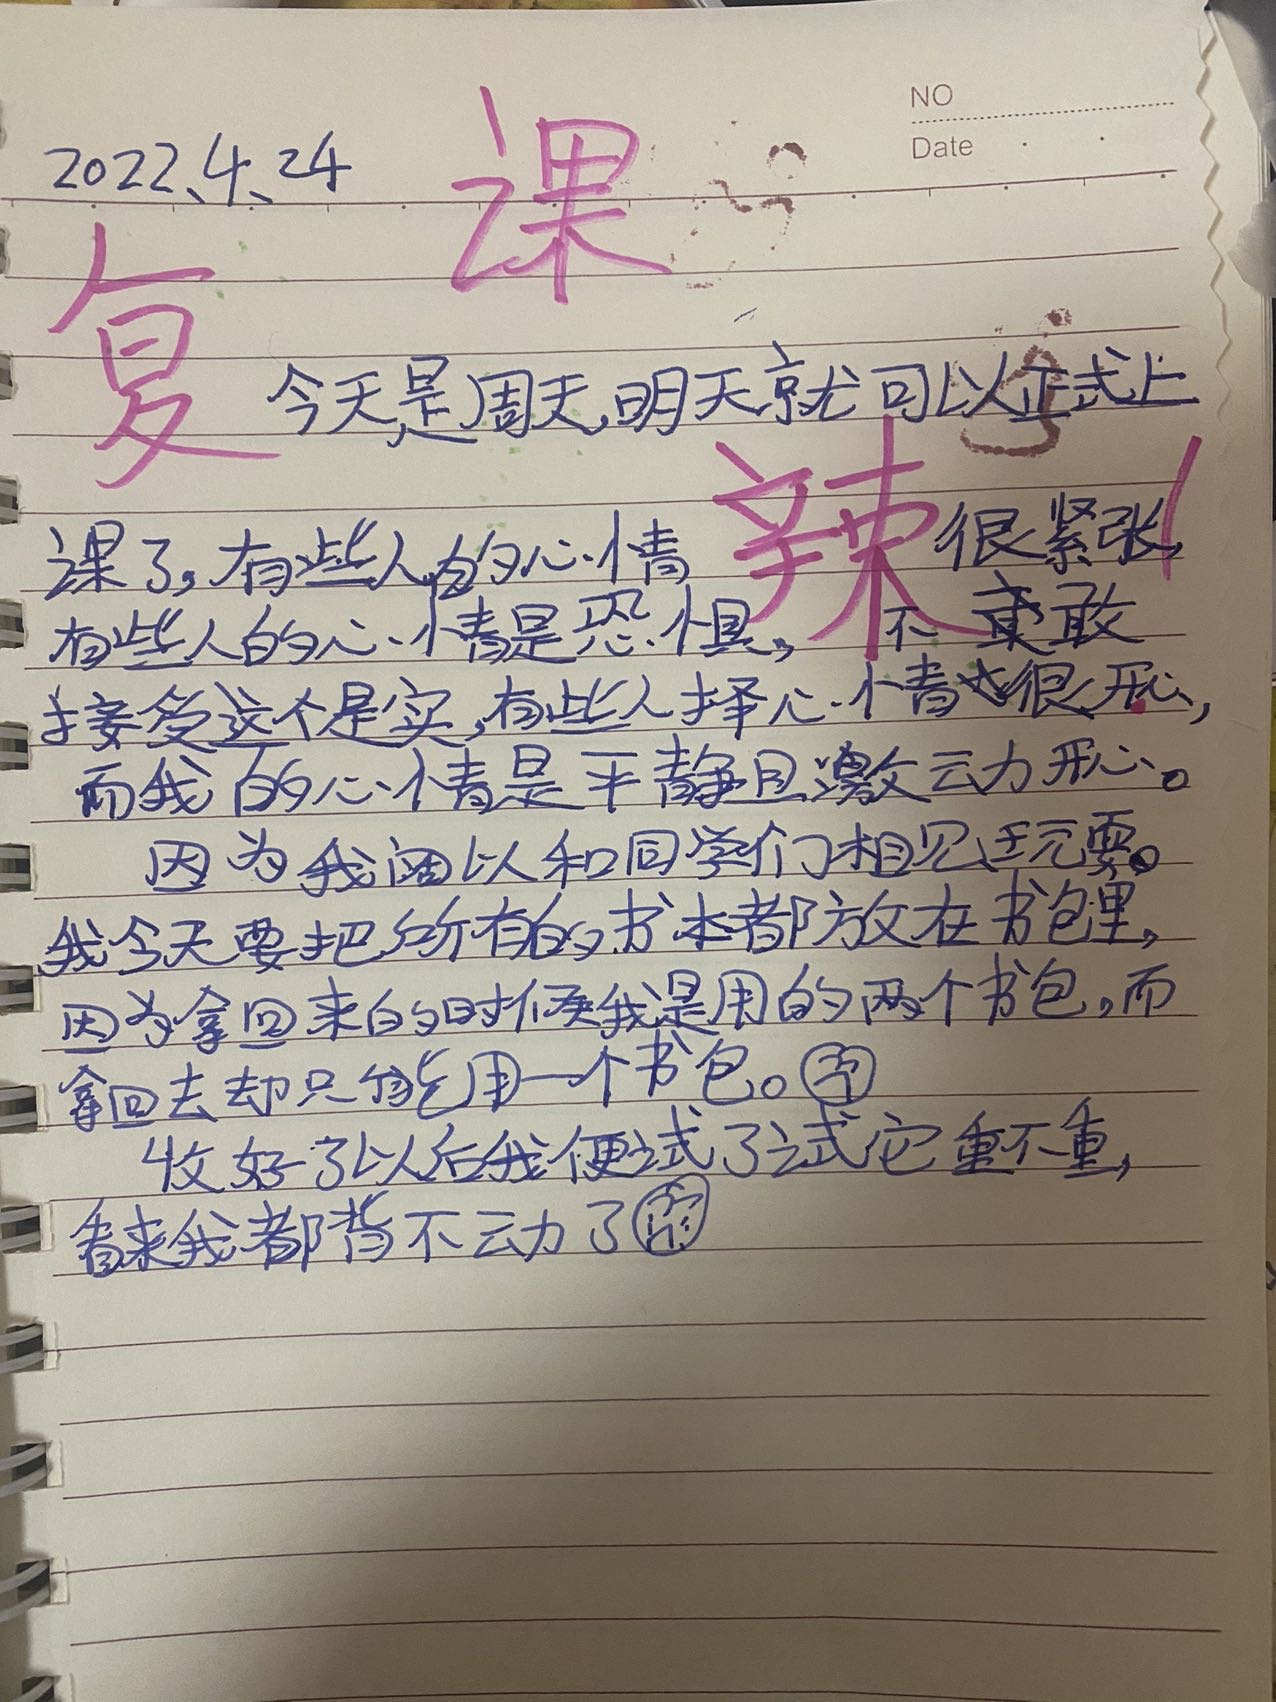 NO
Date
2022.4.24
复课辣!
今天是周天,明天就可以正式上
课了,有些人的心情很紧张,
有些人的心情是恐惧,不敢
接受这个是实,有些人择心情也很开心,
而我的心情是平静且激动开心。
因为我可以和同学们相见玩耍。
我今天要把所有的书本都放在书包里,
因为拿回来的时候我是用的两个书包,而
拿回去却只能用一个书包。
收好了以后我便试了试它重不重,
看来我都背不动了